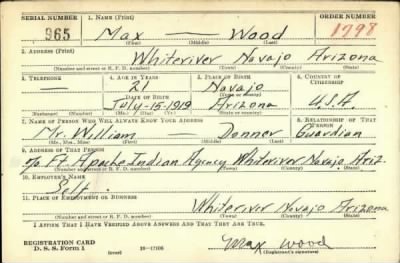 SERIAL NUMBER 1. NAME (Print) ORDER NUMBER
965 Max — Wood 1798
(First) (Middle) (Last)
2. ADDRESS (Print)
Whiteriver Navajo Arizona
(Number and street or R. F. D. number) (Town) (County) (State)
3. TELEPHONE 4. AGE IN YEARS 5. PLACE OF BIRTH 6. COUNTRY OF CITIZENSHIP
— 21 Navajo
DATE OF BIRTH (Town) (County)
July-15-1919 Arizona U.S.A.
(Exchange) (Number) (Mo.) (Day) (Yr.) (State or country)
7. NAME OF PERSON WHO WILL ALWAYS KNOW YOUR ADDRESS 8. RELATIONSHIP OF THAT PERSON
Mr. William — Donner Guardian
(Mr., Mrs., Miss) (First) (Middle) (Last)
9. ADDRESS OF THAT PERSON
c/o Ft. Apache Indian Agency Whiteriver Navajo Ariz.
(Number and street or R. F. D. number) (Town) (County) (State)
10. EMPLOYER'S NAME
Self.
11. PLACE OF EMPLOYMENT OR BUSINESS
Whiteriver Navajo Arizona
(Number and street or R. F. D. number) (Town) (County) (State)
I AFFIRM THAT I HAVE VERIFIED ABOVE ANSWERS AND THAT THEY ARE TRUE.
REGISTRATION CARD
D. S. S. Form 1 (over) 16—17105 Max Wood
(Registrant's signature)